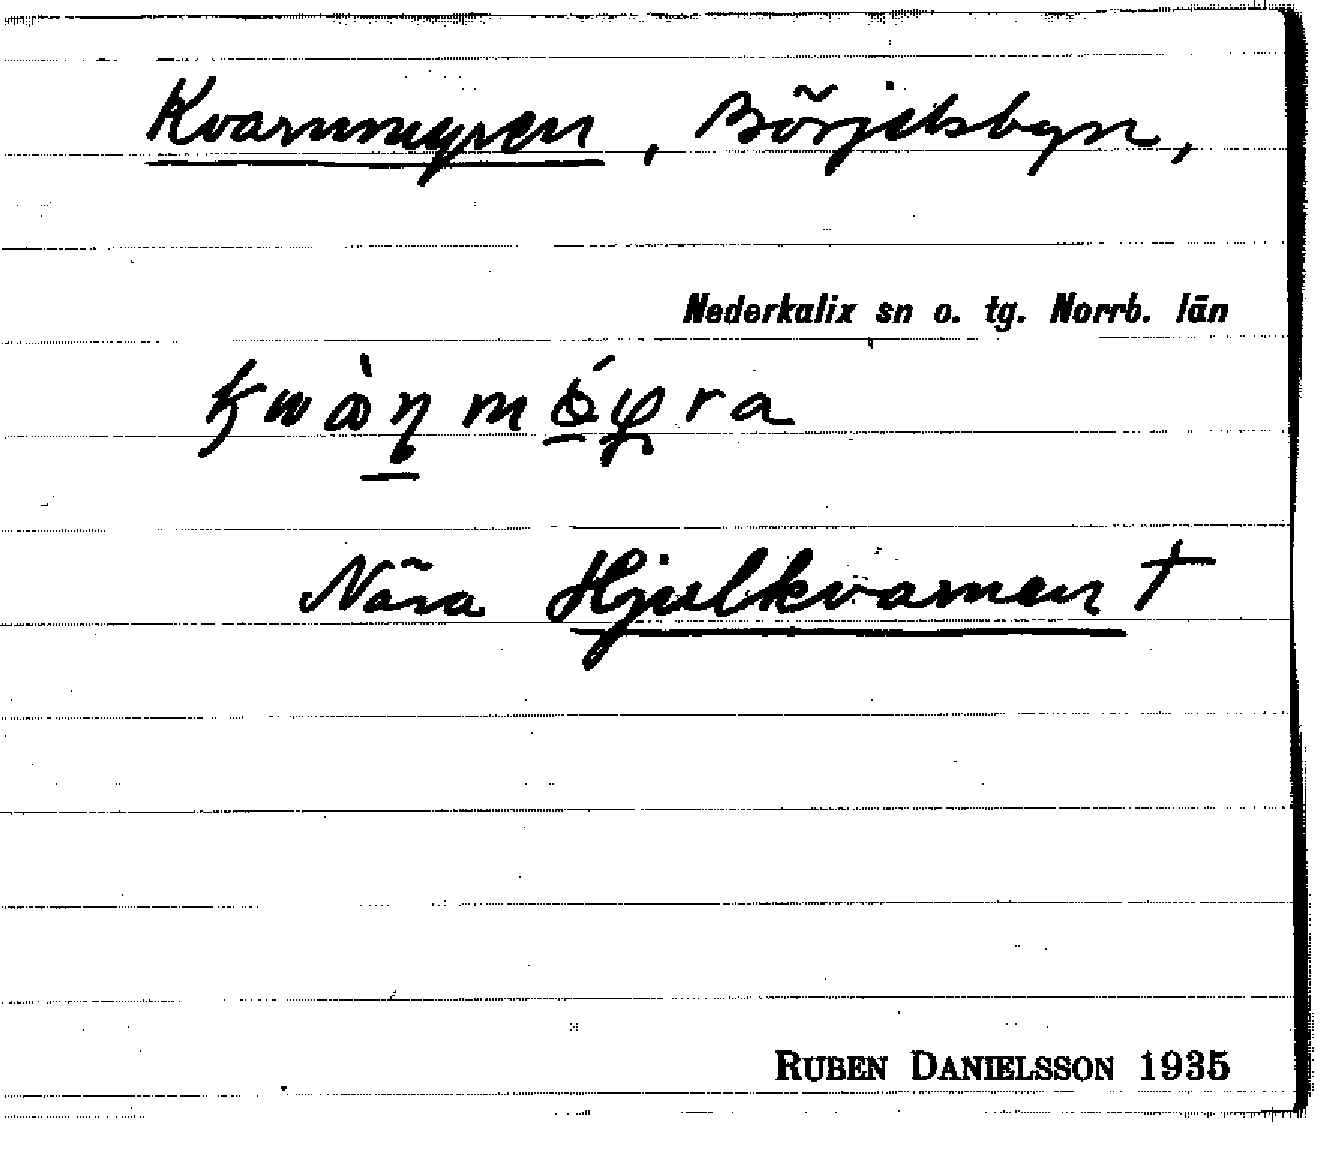 Kvarnmyren, Börjelsbyn,
Nederkalix sn o. tg. Norrb. län
Nära Hjulkvarnen †
RUBEN DANIELSSON 1935